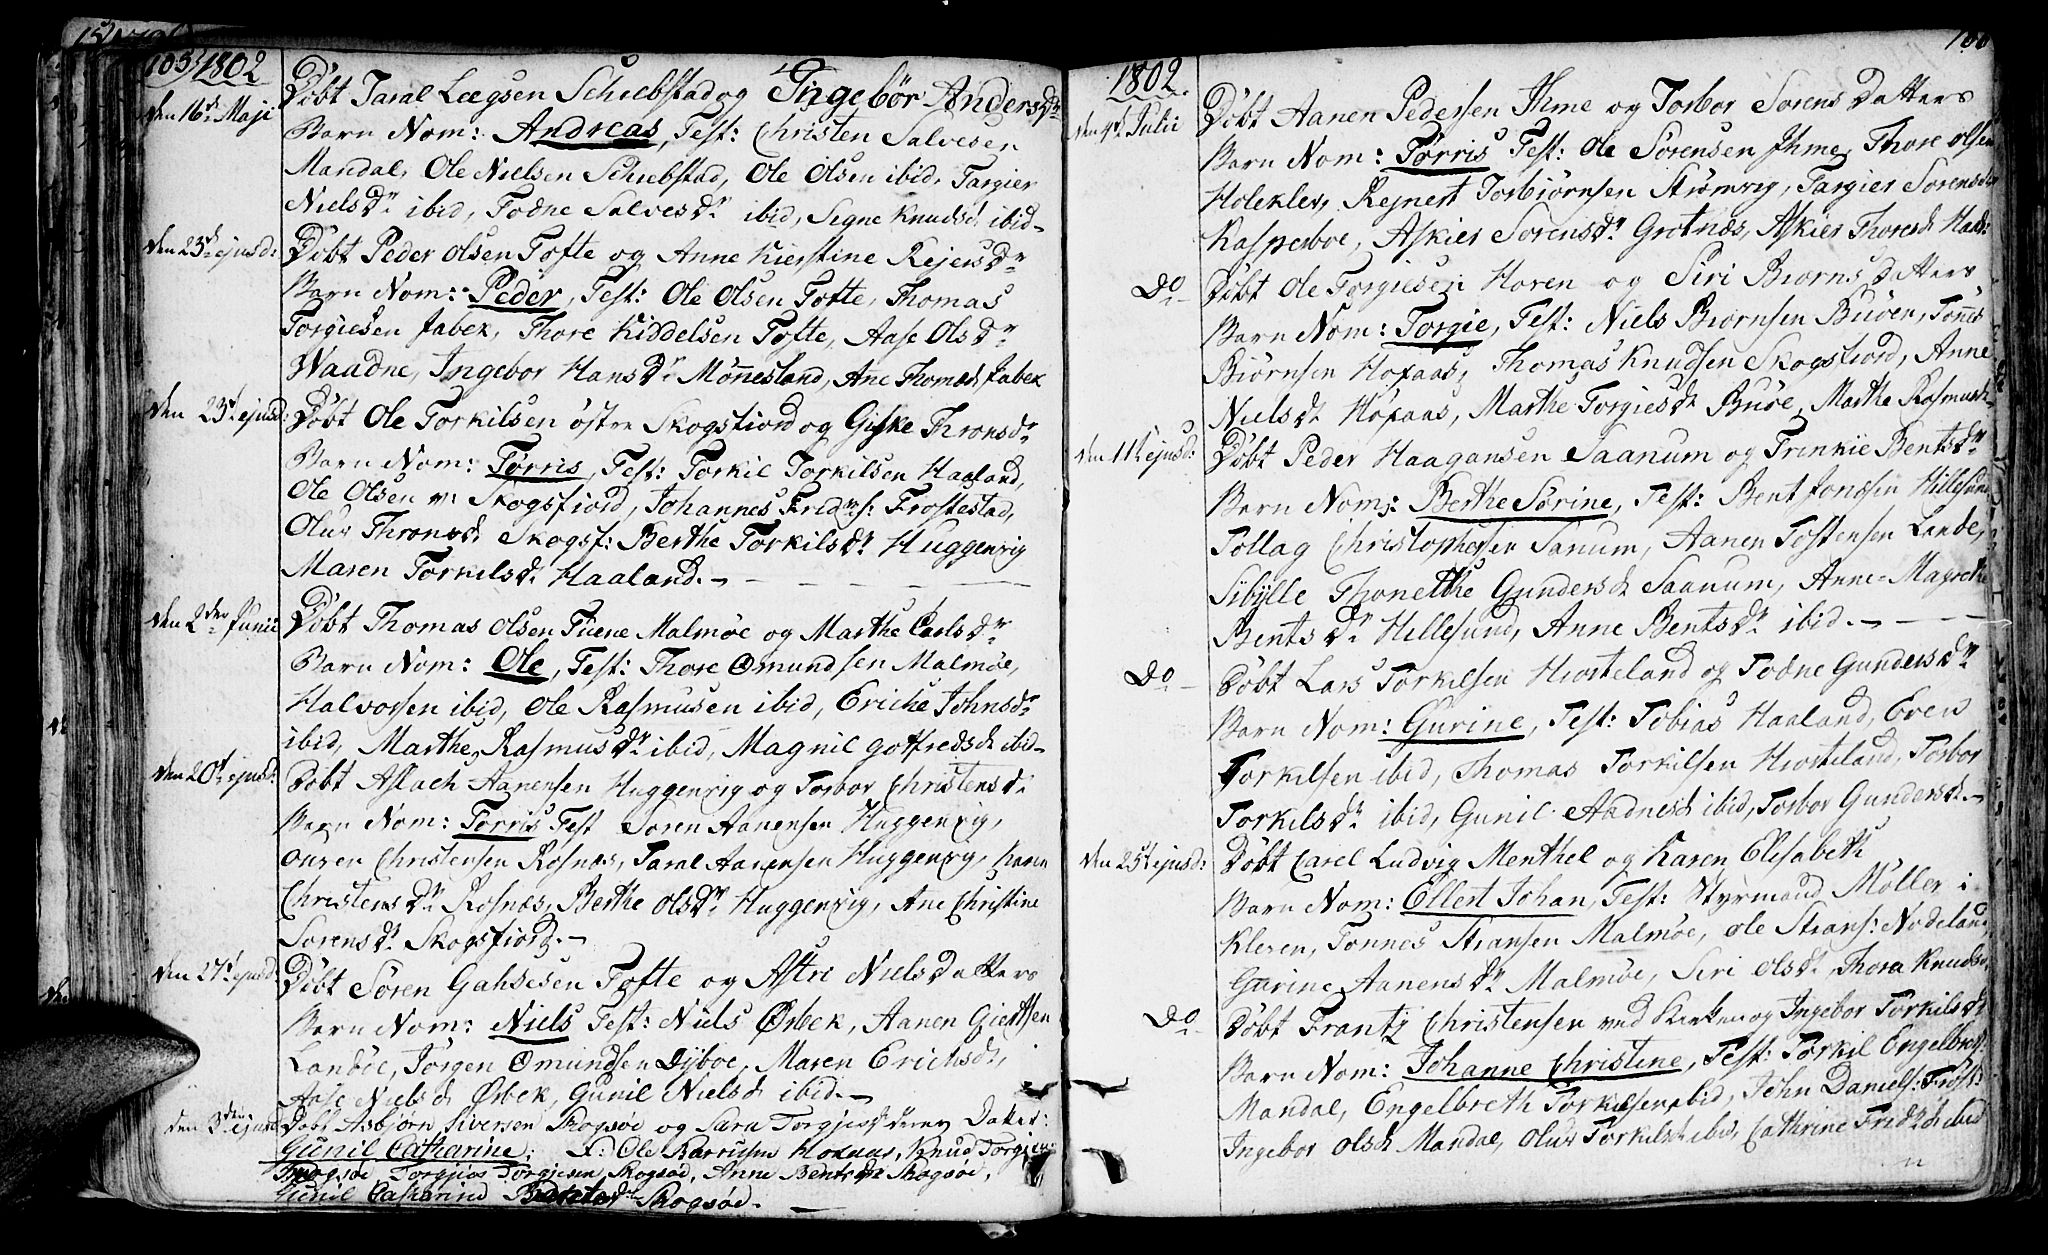 105 1802
den 16d. Maji Døbt Taral Leegsen Schiebstad og Ingebør Andersdr
Barn Nom: Andreas, Test: Christen Salvesen
Mandal, Ole Nielsen Schiebstad, Ole Olsen ibid, Targier
Nielsdr ibid, Todne Salvesdr ibid, Segne Knudsd. ibid
den 23d ejusd: Døbt Peder Olsen Tofte og Anne Kierstine Rejersdr
Barn Nom: Peder, Test: Ole Olsen Tofte, Thomas
Torgiesen Jabek, Thore Kiddelsen Tofte, Aase Olsdr
Waadne, Ingebor Hansdr Mønnesland, Ane Thomæd. Jabek
den 23d. ejusd: Døbt Ole Torkilsen østre Skogsfiord og Giske Thronsdr
Barn Nom: Tørris, Test: Torkil Torkilsen Haaland,
Ole Olsen v: Skogsfiord, Johannes Fridrs: Frostestad,
Olus Thronsd Skogsf: Berthe Torkilsdr Huggenvig
Maren Torkelsdr Haaland.
den 2den Junii Døbt Thomas Olsen Tuene Malmøe og Marthe Carlsdr
Barn Nom: Ole, Test: Thore Omundsen Malmøe,
Halvorsen ibid, Ole Rasmusen ibid, Eriche Johnsdr
ibid, Marthe Rasmusdr ibid, Magnil Gotfredsd. ibid
den 20d ejusd: Døbt Aslach Aanensen Huggenvig og Torbor Christensdr
Barn Nom: Tørris Test Soren Aanensen Huggenvig,
Christensen Rosnæs, Taral Aanensen Huggenvig, Karen
Christensdr Rosnæs, Berthe Olsdr Huggenvig, Ane Christine
Sorensdr Skogsfiord.
den 27d ejusd: Døbt Søren Gahsesen Tofte og Astri Nielsdatters
Barn Nom: Niels Test: Niels Ørbek, Aanen Giertsen
Landøe, Jørgen Omundsen Dyboe, Maren Erichsdr,
Aase Nielsd Ørbek, Gunil Nielsd ibid.
den 3den ejusd Døbt Asbjørn Siversen Skogsøe og Sara Torgjesd deres Datter:
Gunil Catharine; F: Ole Barrusen Hoxaas, Knud Torgjes:
Skogsøe Torgjus Torgjesen Skogsøe, Anne Bentsdr Skogsøe,
Gunil Catharine Bentsdr Skogsøe.
1802.
den 4d. Julii Døbt Aanen Pedersen Ihme og Torbor Sorens Datters
Barn Nom: Tørris Test: Ole Sørensen Ihme, Thore Olsen
Holekler, Rejnert Torbiørnsen Strømvig, Targier Sorensdr
Kasperboe, Askier Sorensdr Grotnæs, Askier Thoresd. Haal:
Do Døbt Ole Torgiesen Horen og Siri Biorns datters
Barn Nom: Torgie, Test: Niels Biornsen Buøen, Tønnes
Biørnsen Hoxaas, Thomas Knudsen Skogsfiord, Anne
Nielsdr Høxaas, Marthe Torgiesdr Buøe, Marthe Rasmusdr
den 11t ejusd: Døbt Peder Haagansen Saanum og Trinkie Bentsdr
Barn Nom: Berthe Sørine, Test: Bent Jonssen Hillesund
Tollag Christophersen Sanum, Aanen Tostensen Lande,
Sibylle Thonethe Gundersd Saanum, Anne Magrethe
Bentsdr Hillesund, Anne Bentsdr ibid.
Do Døbt Lars Torkilsen Hiorteland og Todne Gundersdr
Barn Nom: Gurine, Test: Tobias Haaland, Even
Torkilsen ibid, Thomas Torkilsen Hiorteland, Torbor
Torkilsdr ibid, Gunil Aadnesd ibid, Torbor Gundersdr
den 25t ejusd: Døbt Carel Ludvig Menthel og Karen Elisabeth
Barn Nom: Ellert Johan, Test: Styrmand Møller i
Kleven, Tonnes Stransen Malmøe, Ole Strans: Nodeland
Gurine Aanensdr Malmøe, Siri Olsdr, Thora Knudsdr
Do Døbt Frantz Christensen ved Kirken og Ingebor Torkilsdr
Barn Nom: Johanne Christine, Test: Torkil Engelbret:
Mandal, Engelbreth Torkilsen ibid, John Daniels: Frost:
Ingebor Olsdr Mandal, Olus Torkilsdr ibid, Cathrine Fridrd ibid